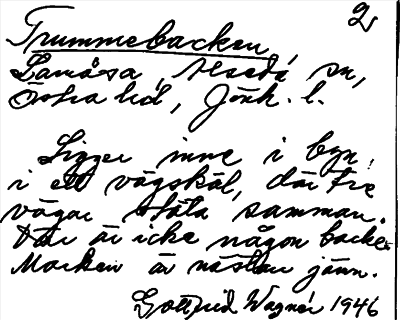 2
Trummebacken,
Lamåsa, Alseda sn,
Östra hd, Jönk. l.
Ligger inne i byn,
i ett vägskäl, där tre
vägar stöta samman.
Där är icke någon backe.
Marken är nästan jämn.
Gottfrid Wagnér 1946